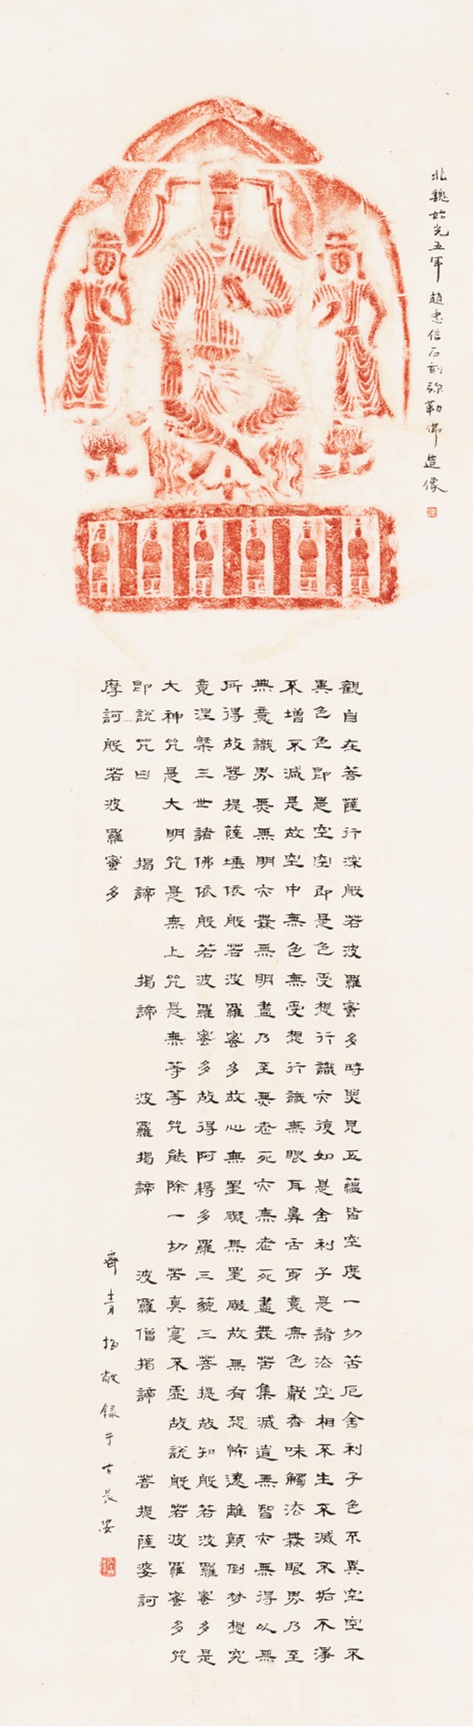 北魏始光五年 趙忠信石刻弥勒佛造像
觀自在菩薩行深般若波羅蜜多時照見五蘊皆空度一切苦厄舍利子色不異空空不
異色色即是空空即是色受想行識亦復如是舍利子是諸法空相不生不滅不垢不淨
不增不減是故空中無色無受想行識無眼耳鼻舌身意無色聲香味觸法無眼界乃至
無意識界無無明亦無無明盡乃至無老死亦無老死盡無苦集滅道無智亦無得以無
所得故菩提薩埵依般若波羅蜜多故心無罣礙無罣礙故無有恐怖遠離顛倒梦想究
竟涅槃三世諸佛依般若波羅蜜多故得阿耨多羅三藐三菩提故知般若波羅蜜多是
大神咒是大明咒是無上咒是無等等咒能除一切苦真實不虛故說般若波羅蜜多咒
即說咒曰 揭諦 揭諦 波羅揭諦 波羅僧揭諦 菩提薩婆訶
摩訶般若波羅蜜多
齊青拓敬錄于古長安